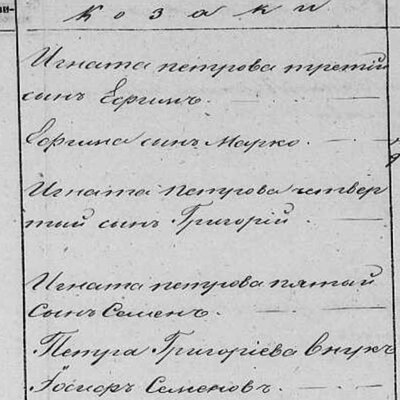 Козаки
Игната петрова третий
сынъ Ефимъ.
Ефима сынъ Марко.
Игната Петрова четвер
тый сынъ Григорій.
Игната петрова пятый
Сынъ Семенъ.
Петра Григоріева внукъ
Іосифъ Семеновъ.